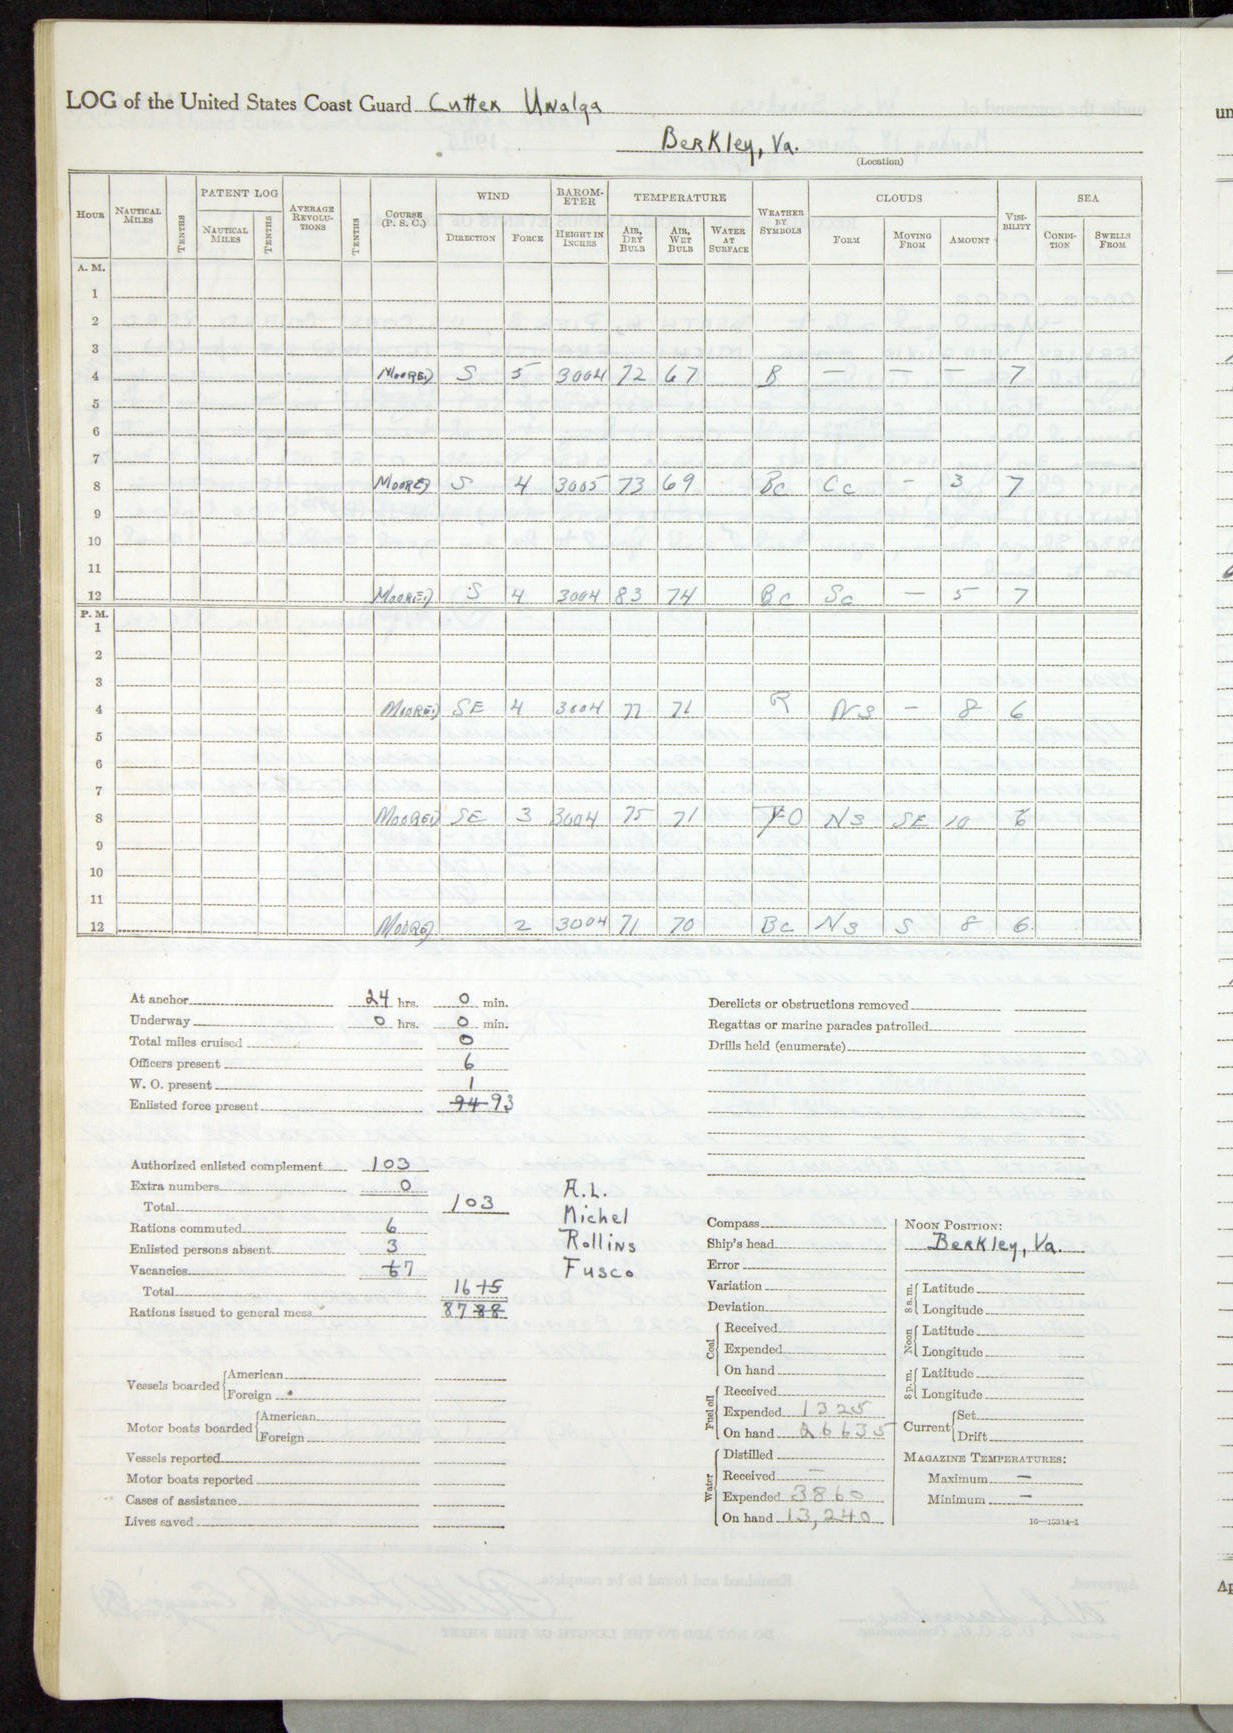 LOG of the United States Coast Guard Cutter Unalga
Berkley, Va.
(Location)
HOUR NAUTICAL MILES TENTHS PATENT LOG NAUTICAL MILES TENTHS AVERAGE REVOLUTIONS TENTHS COURSE (P. S. C.) WIND DIRECTION FORCE BAROMETER HEIGHT IN INCHES TEMPERATURE AIR, DRY BULB AIR, WET BULB WATER AT SURFACE WEATHER BY SYMBOLS CLOUDS FORM MOVING FROM AMOUNT VISIBILITY SEA CONDITION SWELLS FROM
A. M.
1
2
3
4 MOORED S 5 3004 72 67 B — — — 7
5
6
7
8 MOORED S 4 3005 73 69 Bc Cc - 3 7
9
10
11
12 MOORED S 4 3004 83 74 Bc Sc — 5 7
P. M.
1
2
3
4 MOORED SE 4 3004 77 71 R NS - 8 6
5
6
7
8 MOORED SE 3 3004 75 71 O NS SE 10 6
9
10
11
12 MOORED 2 3004 71 70 Bc NS S 8 6
At anchor 24 hrs. 0 min.
Underway 0 hrs. 0 min.
Total miles cruised 0
Officers present 6
W. O. present 1
Enlisted force present 94 93
Authorized enlisted complement 103
Extra numbers 0
Total 103
Rations commuted 6
Enlisted persons absent 3
Vacancies 6 7
Total 16 15
Rations issued to general mess 87 88
A.L.
Michel
Rollins
Fusco
Vessels boarded American
Foreign
Motor boats boarded American
Foreign
Vessels reported
Motor boats reported
Cases of assistance
Lives saved
Derelicts or obstructions removed
Regattas or marine parades patrolled
Drills held (enumerate)
Compass
Ship's head
Error
Variation
Deviation
Coal Received
Expended
On hand
Fuel oil Received
Expended 1325
On hand 26635
Water Distilled
Received —
Expended 3860
On hand 13,240
NOON POSITION:
Berkley, Va.
8 a. m. Latitude
Longitude
Noon Latitude
Longitude
8 p. m. Latitude
Longitude
Current Set
Drift
MAGAZINE TEMPERATURES:
Maximum —
Minimum —